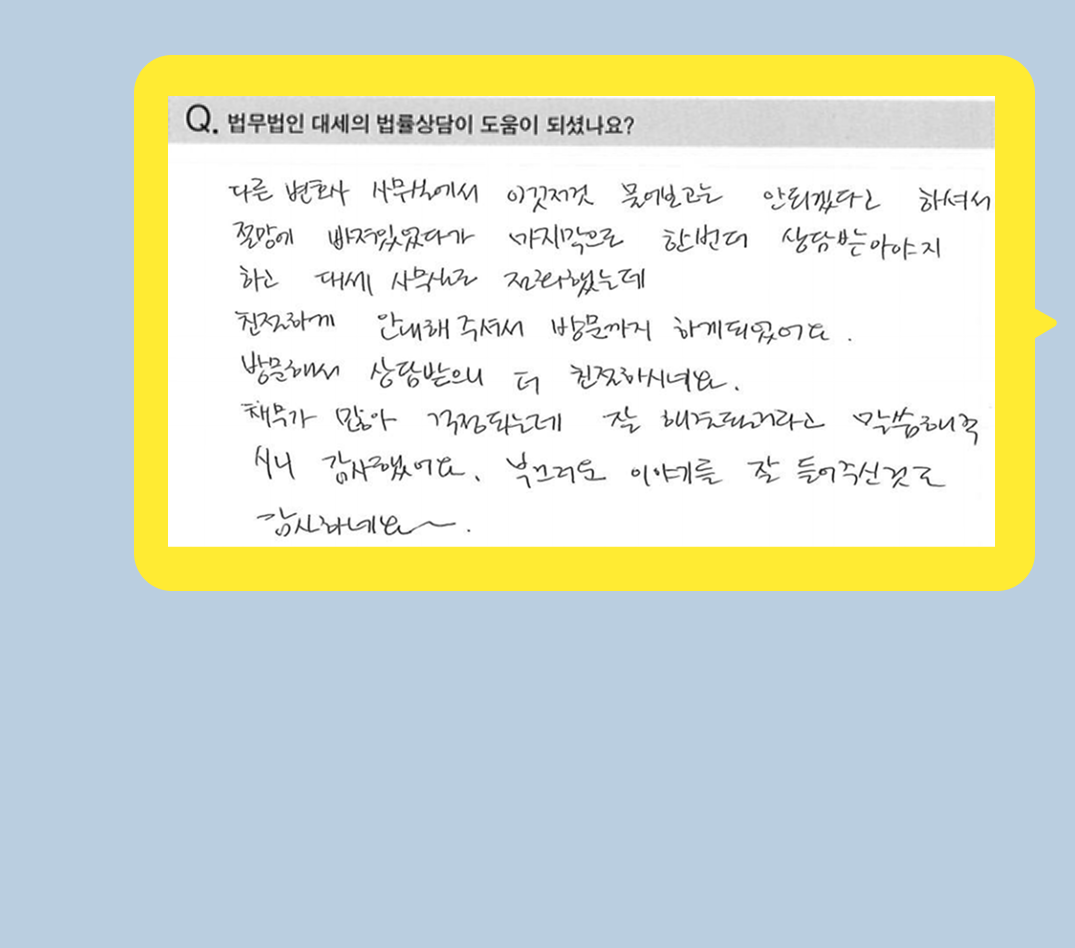 Q. 법무법인 대세의 법률상담이 도움이 되셨나요?
다른 변호사 사무실에서 이것저것 물어보고는 안되겠다고 하셔서
절망에 빠져있었다가 마지막으로 한번더 상담받아야지
하고 대세 사무실로 전화했는데
친절하게 안내해 주셔서 방문까지 하게되었어요.
방문해서 상담받으니 더 친절하시네요.
채무가 많아 걱정되는데 잘 해결될거라고 말씀해주
시니 감사했어요. 부끄러운 이야기를 잘 들어주신것도
감사하네요~.